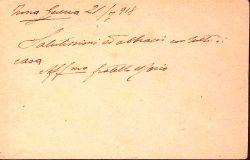 Zona Guerra 21/5 918
Salutissimi ed abbracci con tutti
casa
Aff.mo fratello Mario